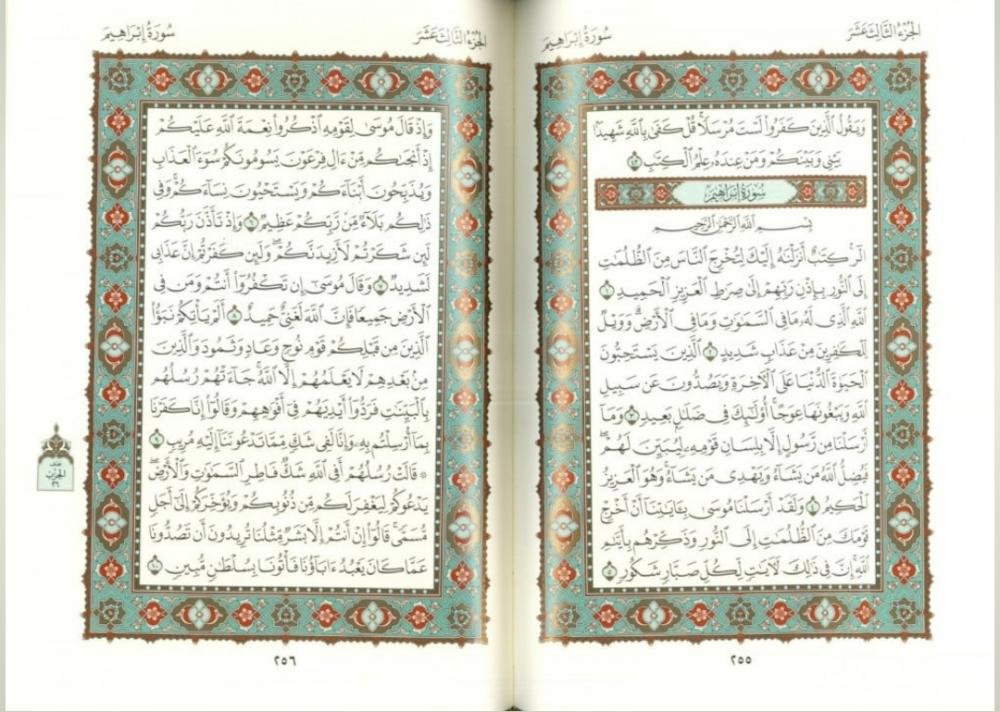 الجزء الثالث عشر
سورة إبراهيم
وَيَقُولُ الَّذِينَ كَفَرُوا لَسْتَ مُرْسَلًا ۚ قُلْ كَفَىٰ بِاللَّهِ شَهِيدًا
بَيْنِي وَبَيْنَكُمْ وَمَنْ عِندَهُ عِلْمُ الْكِتَٰبِ ٤٣
سورة إبراهيم
بسم الله الرحمن الرحيم
الٓر ۚ كِتَٰبٌ أَنزَلْنَٰهُ إِلَيْكَ لِتُخْرِجَ النَّاسَ مِنَ الظُّلُمَٰتِ
إِلَى النُّورِ بِإِذْنِ رَبِّهِمْ إِلَىٰ صِرَٰطِ الْعَزِيزِ الْحَمِيدِ ١
اللَّهِ الَّذِي لَهُ مَا فِي السَّمَٰوَٰتِ وَمَا فِي الْأَرْضِ ۗ وَوَيْلٌ
لِّلْكَٰفِرِينَ مِنْ عَذَابٍ شَدِيدٍ ٢ الَّذِينَ يَسْتَحِبُّونَ
الْحَيَوٰةَ الدُّنْيَا عَلَى الْآخِرَةِ وَيَصُدُّونَ عَن سَبِيلِ
اللَّهِ وَيَبْغُونَهَا عِوَجًا ۚ أُولَٰئِكَ فِي ضَلَٰلٍ بَعِيدٍ ٣ وَمَا
أَرْسَلْنَا مِن رَّسُولٍ إِلَّا بِلِسَانِ قَوْمِهِ لِيُبَيِّنَ لَهُمْ ۖ
فَيُضِلُّ اللَّهُ مَن يَشَاءُ وَيَهْدِي مَن يَشَاءُ ۚ وَهُوَ الْعَزِيزُ
الْحَكِيمُ ٤ وَلَقَدْ أَرْسَلْنَا مُوسَىٰ بِـَٔايَٰتِنَا أَنْ أَخْرِجْ
قَوْمَكَ مِنَ الظُّلُمَٰتِ إِلَى النُّورِ وَذَكِّرْهُم بِأَيَّىٰمِ
اللَّهِ ۚ إِنَّ فِي ذَٰلِكَ لَآيَٰتٍ لِّكُلِّ صَبَّارٍ شَكُورٍ ٥
٢٥٥
الجزء الثالث عشر
سورة إبراهيم
وَإِذْ قَالَ مُوسَىٰ لِقَوْمِهِ اذْكُرُوا نِعْمَةَ اللَّهِ عَلَيْكُمْ
إِذْ أَنجَىٰكُم مِّنْ ءَالِ فِرْعَوْنَ يَسُومُونَكُمْ سُوءَ الْعَذَابِ
وَيُذَبِّحُونَ أَبْنَاءَكُمْ وَيَسْتَحْيُونَ نِسَاءَكُمْ ۚ وَفِي
ذَٰلِكُم بَلَاءٌ مِّن رَّبِّكُمْ عَظِيمٌ ٦ وَإِذْ تَأَذَّنَ رَبُّكُمْ
لَئِن شَكَرْتُمْ لَأَزِيدَنَّكُمْ ۖ وَلَئِن كَفَرْتُمْ إِنَّ عَذَابِي
لَشَدِيدٌ ٧ وَقَالَ مُوسَىٰ إِن تَكْفُرُوا أَنتُمْ وَمَن فِي
الْأَرْضِ جَمِيعًا فَإِنَّ اللَّهَ لَغَنِيٌّ حَمِيدٌ ٨ أَلَمْ يَأْتِكُمْ نَبَؤُا
الَّذِينَ مِن قَبْلِكُمْ قَوْمِ نُوحٍ وَعَادٍ وَثَمُودَ ۛ وَالَّذِينَ
مِن بَعْدِهِمْ ۛ لَا يَعْلَمُهُمْ إِلَّا اللَّهُ ۚ جَاءَتْهُمْ رُسُلُهُم
بِالْبَيِّنَٰتِ فَرَدُّوا أَيْدِيَهُمْ فِي أَفْوَٰهِهِمْ وَقَالُوا إِنَّا كَفَرْنَا
بِمَا أُرْسِلْتُم بِهِ وَإِنَّا لَفِي شَكٍّ مِّمَّا تَدْعُونَنَا إِلَيْهِ مُرِيبٍ ٩
۞ قَالَتْ رُسُلُهُمْ أَفِي اللَّهِ شَكٌّ فَاطِرِ السَّمَٰوَٰتِ وَالْأَرْضِ ۖ
يَدْعُوكُمْ لِيَغْفِرَ لَكُم مِّن ذُنُوبِكُمْ وَيُؤَخِّرَكُمْ إِلَىٰ أَجَلٍ
مُّسَمًّى ۚ قَالُوا إِنْ أَنتُمْ إِلَّا بَشَرٌ مِّثْلُنَا تُرِيدُونَ أَن تَصُدُّونَا
عَمَّا كَانَ يَعْبُدُ ءَابَاؤُنَا فَأْتُونَا بِسُلْطَٰنٍ مُّبِينٍ ١٠
نصف
الحزب
٢٦
٢٥٦